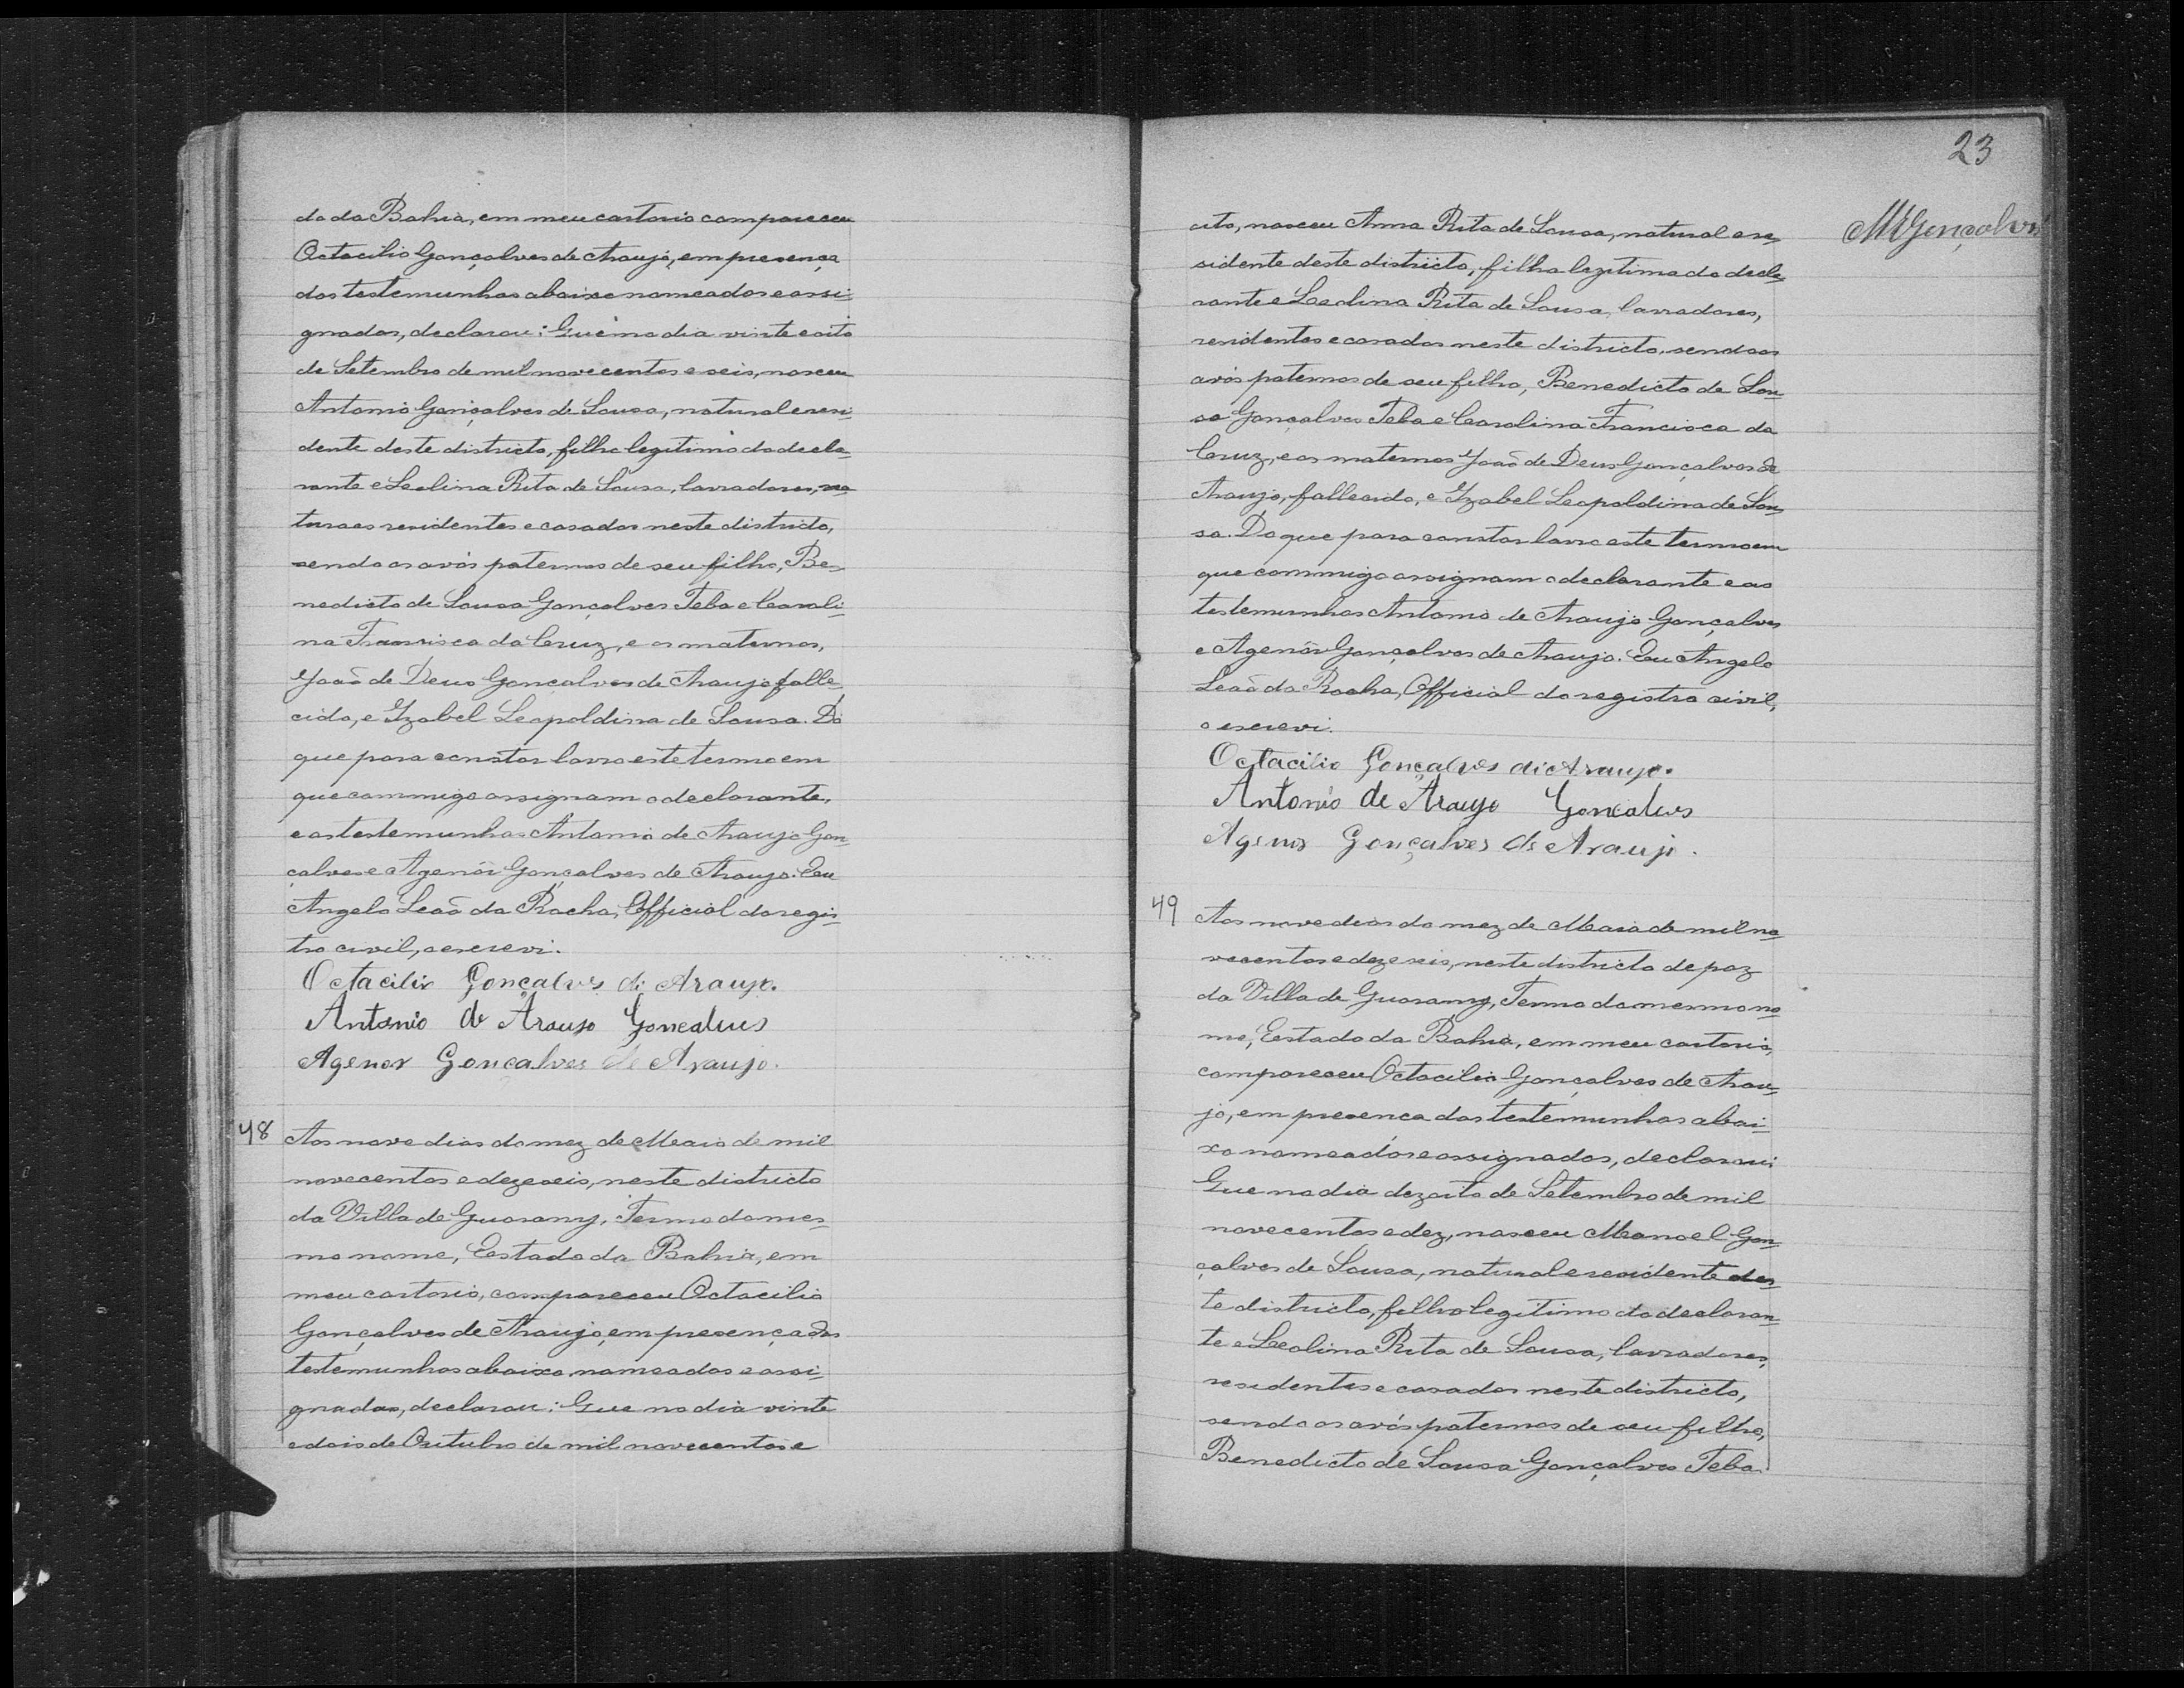 do da Bahia, em meu cartorio compareceu
Octacilio Gonçalves de Araujo, em presença
das testemunhas abaixo nomeadas e assi-
gnadas, declarou: Que no dia vinte e oito
de Setembro de mil novecentos e seis, nasceu
Antonio Gonçalves de Sousa, natural e resi-
dente deste districto, filho legitimo do decla-
rante e Leolina Rita de Sousa, lavradores, na-
turaes residentes e casados neste districto,
sendo os avós paternos de seu filho, Be-
nedicto de Sousa Gonçalves Teba e Caroli-
na Francisca da Cruz, e os maternos,
João de Deus Gonçalves de Araujo falle-
cido, e Izabel Leopoldina de Sousa. Do
que para constar lavro este termo em
que commigo assignam o declarante,
e as testemunhas Antonio de Araujo Gon-
çalves e Agenôr Gonçalves de Araujo. Eu
Angelo Leão da Rocha, Official do regis-
tro civil, o escrevi.
Octacilio Gonçalves de Araujo.
Antonio de Araujo Goncalves
Agenor Gonçalves de Araujo.
48 Aos nove dias do mez de Maio de mil
novecentos e dezeseis, neste districto
da Villa de Guarany, Termo do mes-
mo nome, Estado da Bahia, em
meu cartorio, compareceu Octacilio
Gonçalves de Araujo, em presença das
testemunhas abaixo nomeadas e assi-
gnadas, declarou: Que no dia vinte
e dois de Outubro de mil novecentos e
23
oito, nasceu Anna Rita de Sousa, natural e re-
MGonçalves
sidente deste districto, filha legitima do decla-
rante e Leolina Rita de Sousa, lavradores,
residentes e casados neste districto, sendo os
avós paternos de seu filho, Benedicto de Sou-
sa Gonçalves Teba e Carolina Francisca da
Cruz, e os maternos João de Deus Gonçalves de
Araujo, fallecido, e Izabel Leopoldina de Sou-
sa. Do que para constar lavro este termo em
que commigo assignam o declarante e as
testemunhas Antonio de Araujo Gonçalves
e Agenôr Gonçalves de Araujo. Eu Angelo
Leão da Rocha, Official do registro civil,
o escrevi.
Octacilio Gonçalves de Araujo.
Antonio de Araujo Goncalves
Agenor Gonçalves de Araujo.
49 Aos nove dias do mez de Maio de mil no-
vecentos e dezeseis, neste districto de paz
da Villa de Guarany, Termo do mesmo no-
me, Estado da Bahia, em meu cartorio,
compareceu Octacilio Gonçalves de Arau-
jo, em presença das testemunhas abai-
xo nomeadas e assignadas, declarou:
Que no dia dezoito de Setembro de mil
novecentos e dez, nasceu Manoel Gon-
çalves de Sousa, natural e residente des-
te districto, filho legitimo do declaran-
te e Leolina Rita de Sousa, lavradores,
residentes e casados neste districto,
sendo os avós paternos de seu filho,
Benedicto de Sousa Gonçalves Teba